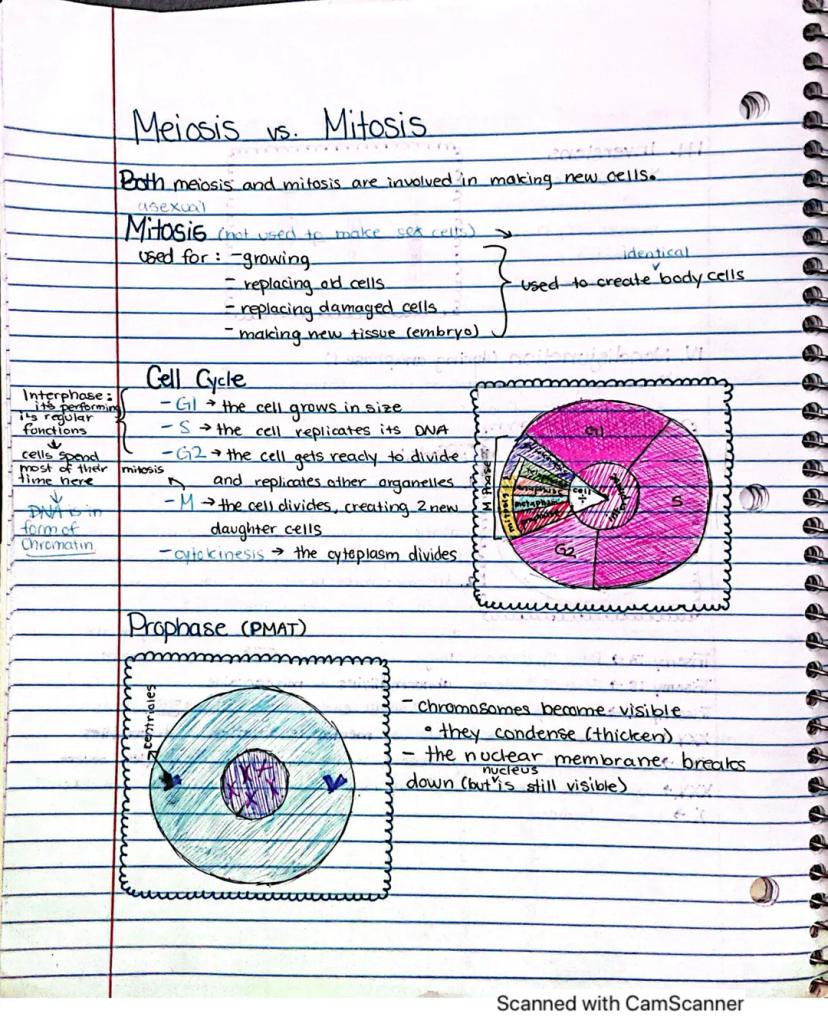 Meiosis vs. Mitosis
Both meiosis and mitosis are involved in making new cells.
asexual
Mitosis (not used to make sex cells) →
used for : - growing
- replacing old cells
- replacing damaged cells
- making new tissue (embryo)
identical
used to create body cells
Cell Cycle
- G1 → the cell grows in size
- S → the cell replicates its DNA
- G2 → the cell gets ready to divide
and replicates other organelles
mitosis
- M → the cell divides, creating 2 new
daughter cells
- cytokinesis → the cytoplasm divides
Interphase:
its performing
it's regular
functions
↓
cells spend
most of their
time here
↓
DNA is in
form of
Chromatin
G1
S
G2
M Phase
mitosis
anaphase
metaphase
cell
÷
Prophase (PMAT)
centrioles
- chromosomes become visible
• they condense (thicken)
- the nuclear membrane breaks
nucleus
down (but is still visible)
Scanned with CamScanner